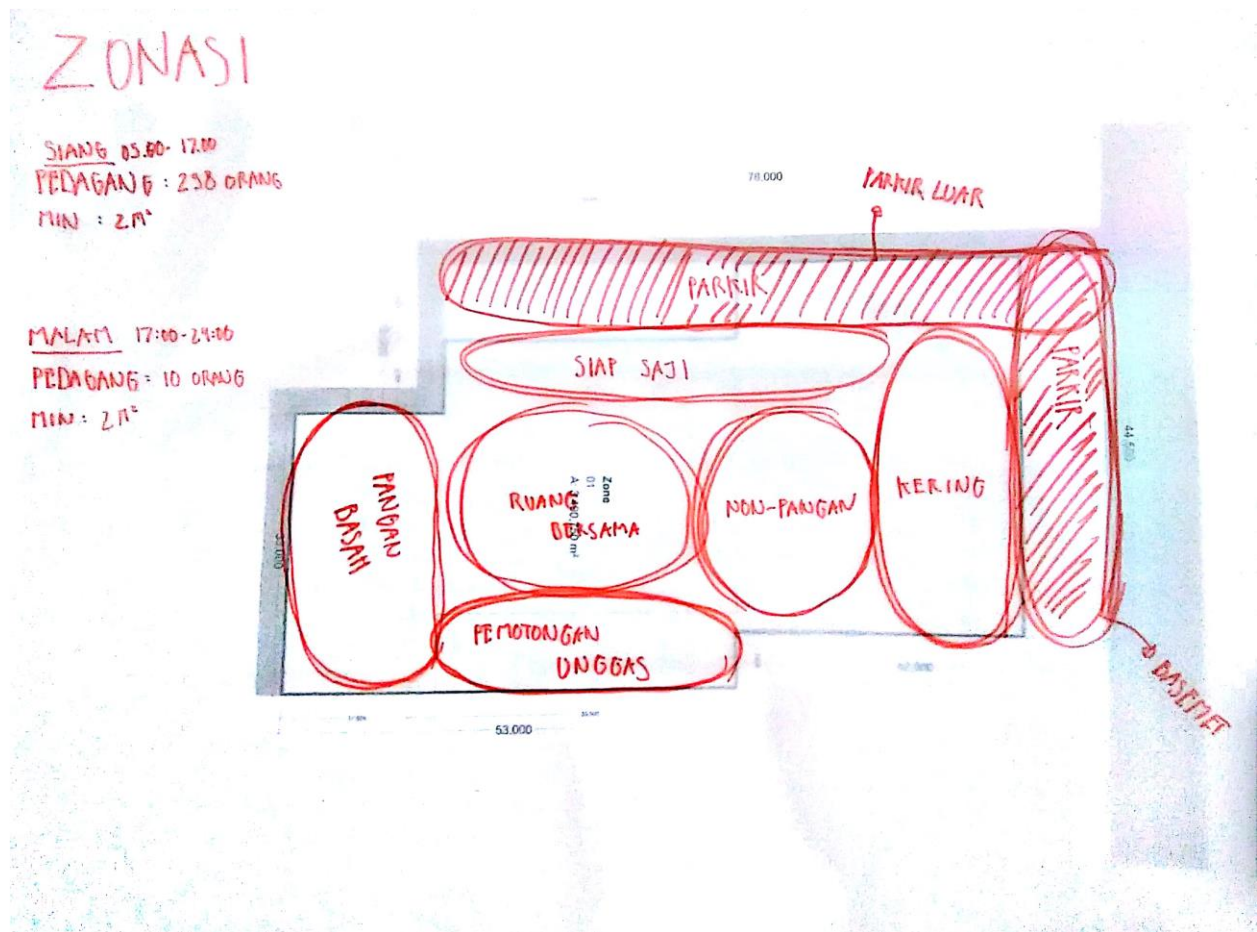 ZONASI
SIANG 05.00-17.00
PEDAGANG : 298 ORANG
MIN : 2 M²
MALAM 17:00-24:00
PEDAGANG = 10 ORANG
MIN : 2 M²
76.000
PARKIR LUAR
PARKIR
SIAP SAJI
PARKIR
44.500
PANGAN
BASAH
RUANG
BERSAMA
Zona
01
NON-PANGAN
KERING
PEMOTONGAN
UNGGAS
BASEMET
53.000